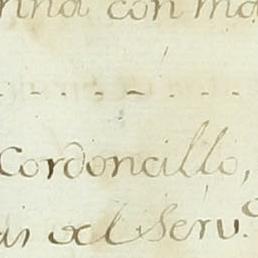 con
Cordoncillo,
as del Serv.º